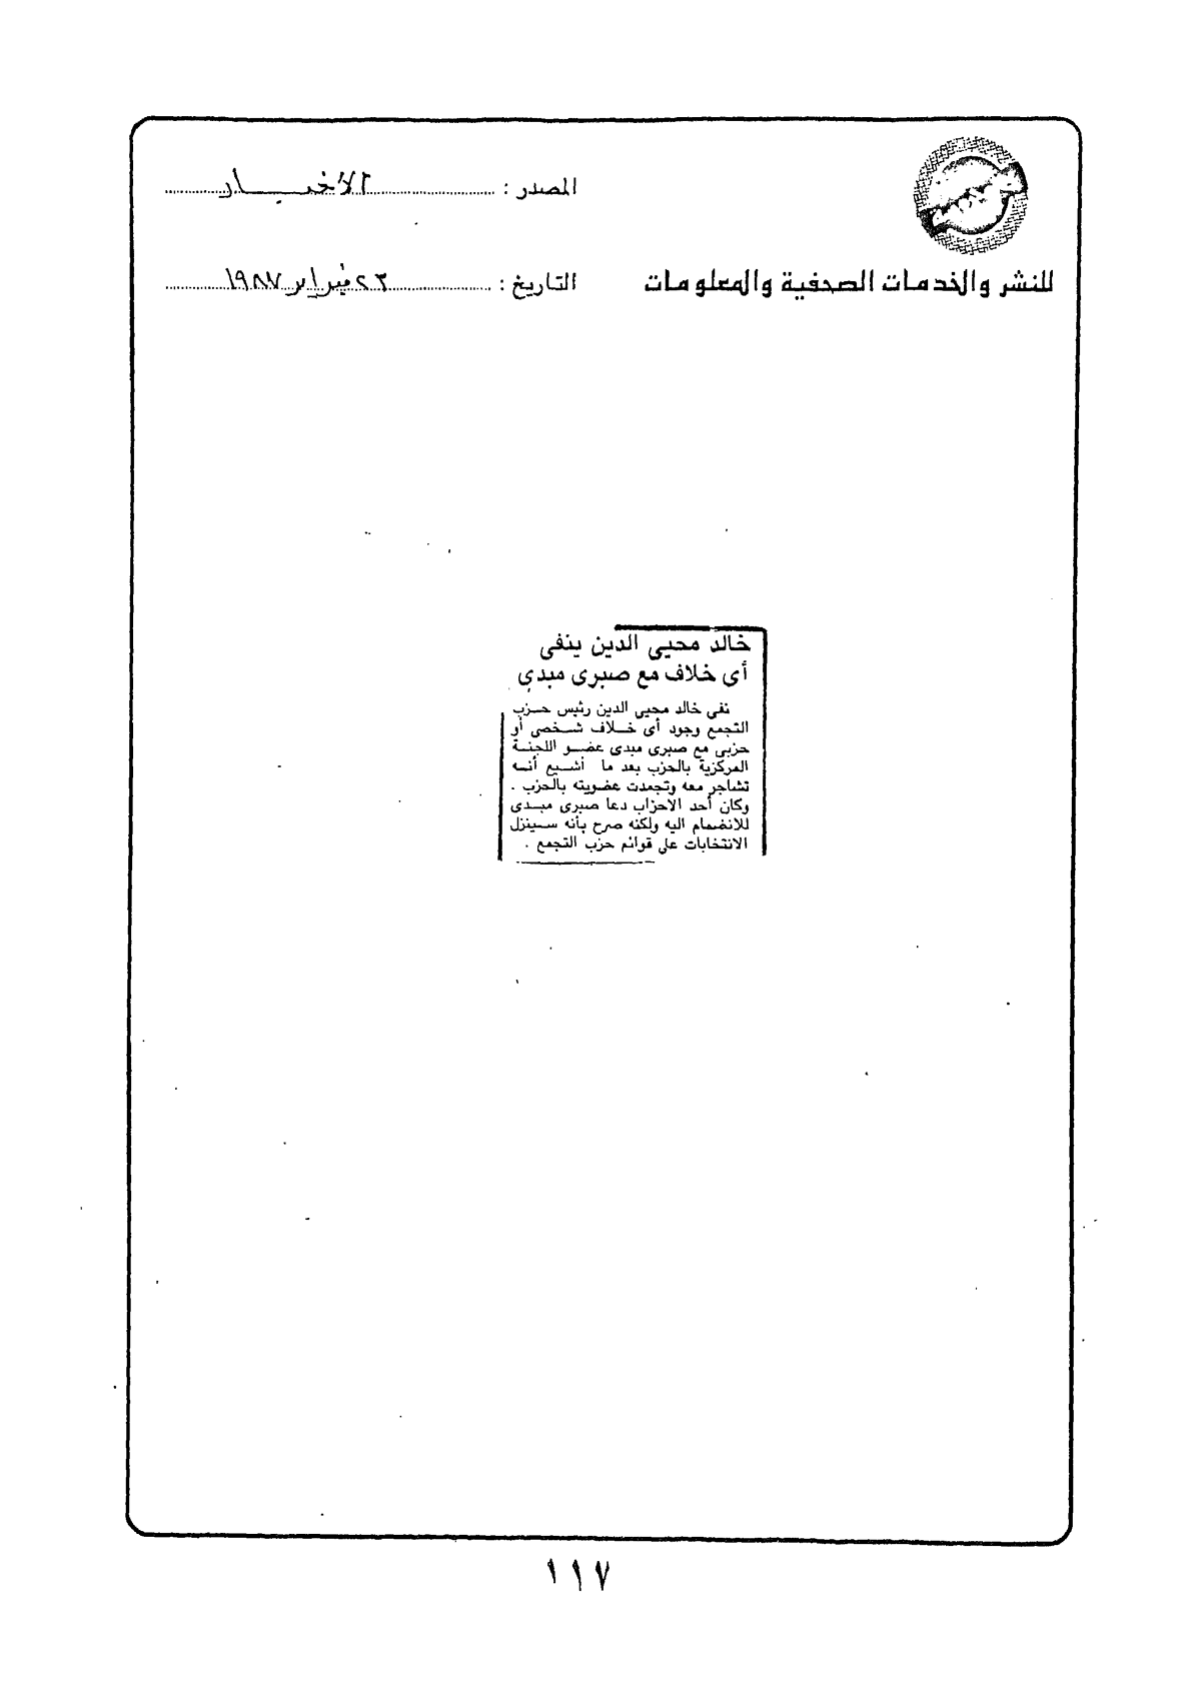 المصدر : الأخبار
للنشر والخدمات الصحفية والمعلومات
التاريخ : ٢٣ فبراير ١٩٨٧
خالد محيى الدين ينفى
أى خلاف مع صبرى مبدى
نفى خالد محيى الدين رئيس حزب
التجمع وجود أى خلاف شخصى أو
حزبى مع صبرى مبدى عضو اللجنة
المركزية بالحزب بعد ما أشيع أنه
تشاجر معه وتجمدت عضويته بالحزب .
وكان أحد الاحزاب دعا صبرى مبدى
للانضمام اليه ولكنه صرح بأنه سينزل
الانتخابات على قوائم حزب التجمع .
١١٧